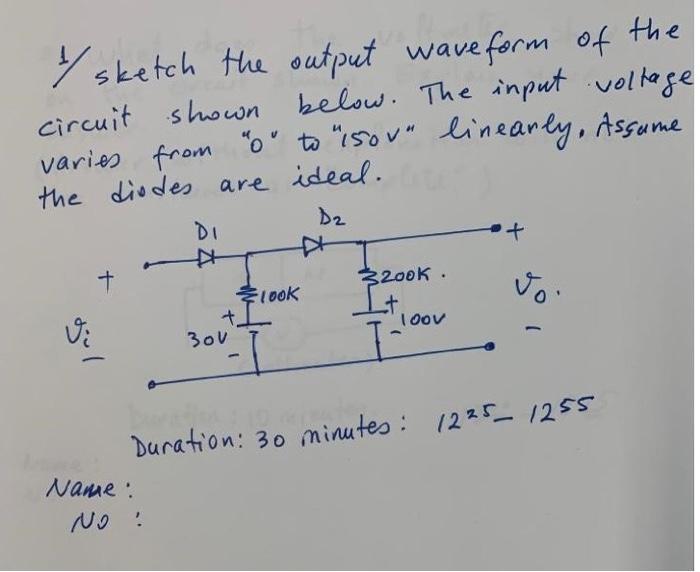 1/ sketch the output waveform of the
circuit shown below. The input voltage
varies from "0" to "150V" linearly. Assume
the diodes are ideal.
D1
D2
+
+
100K
200K.
Vo.
+
+
Vi
30V
100V
-
-
-
-
Duration: 30 minutes: 12 25 - 12 55
Name:
No :